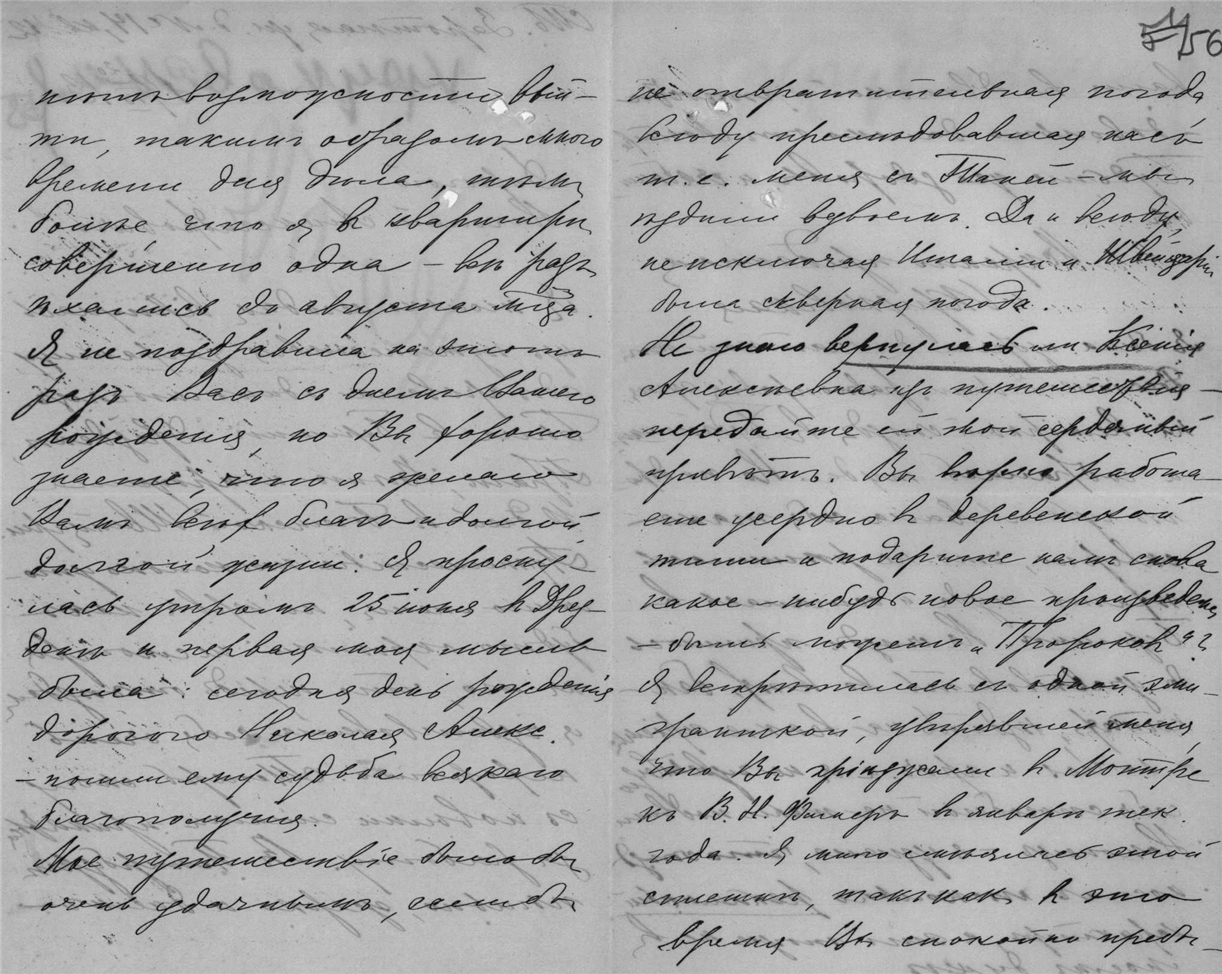 нѣтъ возможности вый-
ти, такимъ образомъ много
времени для дѣла, тѣмъ
болѣе что я въ квартирѣ
совершенно одна – всѣ разъ-
ѣхались до августа мца.
Я не поздравила на этотъ
разъ Васъ съ днемъ Вашего
рожденія, но Вы хорошо
знаете, что я желаю
Вамъ всѣхъ благъ и долгой
долгой жизни. Я просну-
лась утромъ 25 іюля въ Дрез-
денѣ и первая моя мысль
была: сегодня день рожденія
дорогого Николая Алекс.
– пошли ему судьба всякаго
благополучія.
Мое путешествіе было бы
очень удачнымъ, если бъ
56
не отвратительная погода
всюду преслѣдовавшая насъ
т.е. меня съ Таней – мы
ѣздили вдвоемъ. Да и всюду,
не исключая Италіи и Швейцаріи
была скверная погода.
Не знаю вернулась ли Ксенія
Алексѣевна изъ путешествія –
передайте ей мой сердечный
привѣтъ. Вы вѣрно работа-
ете усердно въ деревенской
тиши и подарите намъ снова
какое-нибудь новое произведеніе
– быть можетъ „Пророковъ“?
Я встрѣтилась съ одной эми-
гранткой, увѣрявшей меня,
что Вы пріѣзжали въ Монтре
къ В. Н. Фигнеръ въ январѣ тек.
года. Я много смѣялась этой
сплетнѣ, такъ какъ въ это
время Вы спокойно пребы-